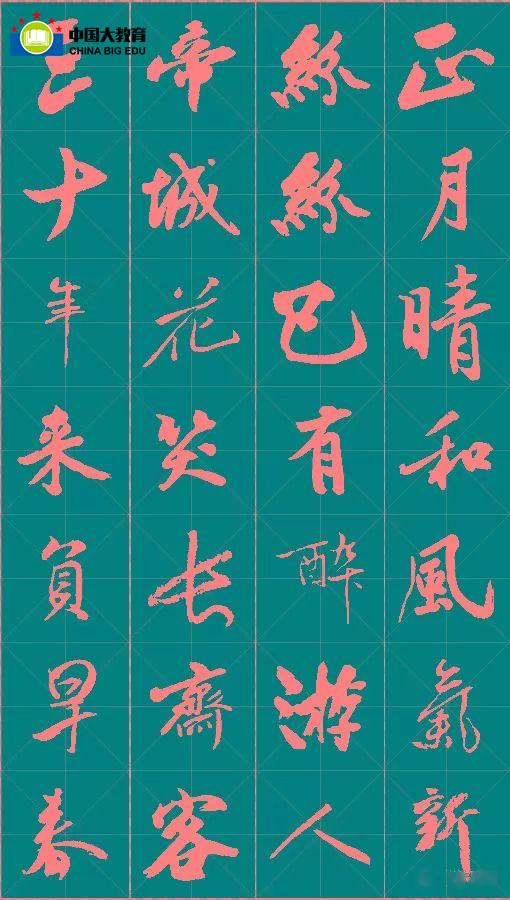 中国大教育
CHINA BIG EDU
正月晴和風氣新
絲絲已有醉游人
帝城花笑長齋客
三十年来負早春